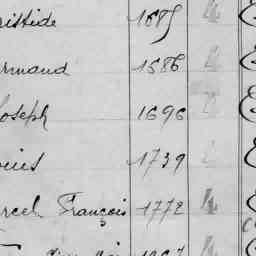 ristide 1685 4
rmand 1686 4
oseph 1696
ouis 1739
arcel François 1772 4